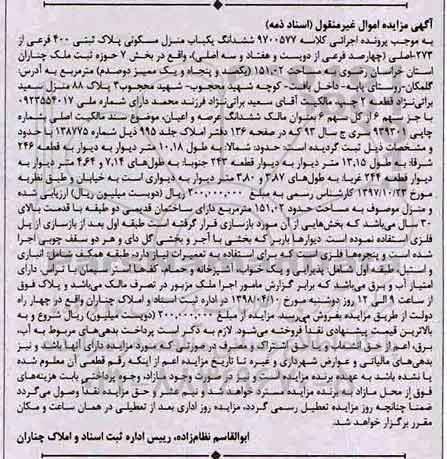 آگهی مزایده اموال غیرمنقول (اسناد ذمه)
به موجب پرونده اجرائی کلاسه ۹۷۰۰۵۷۷ ششدانگ یکباب منزل مسکونی پلاک ثبتی ۴۰۰ فرعی از
۲۷۳-اصلی (چهارصد فرعی از دویست و هفتاد و سه اصلی)، واقع در بخش ۷ حوزه ثبت ملک چناران
استان خراسان رضوی به مساحت ۱۵۱.۰۲ (یکصد و پنجاه و یک ممیز دوصدم) مترمربع به آدرس:
گلمکان- روستای پایه- داخل بافت- کوچه شهید محجوب- شهید محجوب۳ پلاک ۸۸ منزل سعید
براتی‌نژاد قطعه ۲ جیم، مالکیت آقای سعید براتی‌نژاد فرزند محمد دارای شماره ملی ۰۹۲۳۵۵۴۰۱۷
با جز سهم ۶ از کل سهم ۶ بعنوان مالک ششدانگ عرصه و اعیان، موضوع سند مالکیت اصلی بشماره
چاپی ۹۳۹۳۰۱ سری ج سال ۹۳ که در صفحه ۱۳۶ دفتر املاک جلد ۹۹۵ ذیل شماره ۱۳۸۷۷۵ با حدود
و مشخصات ذیل ثبت گردیده است: حدود: شمالا: به طول ۱۰.۱۸ متر دیوار به دیوار به قطعه ۲۴۶
شرقا: بطول ۱۳.۱۵ متر دیوار به دیوار قطعه ۲۴۳ جنوبا: به طول‌های ۷.۱۴ و ۴.۶۴ متر دیوار به
دیوار قطعه ۲۴۴ غربا: به طول‌های ۳.۸۷ و ۳.۸۰ متر دیوار به دیواری است به خیابان و طبق نظریه
مورخ ۱۳۹۷/۱۰/۲۳ کارشناس رسمی به مبلغ ۲۰۰,۰۰۰,۰۰۰ ریال (دویست میلیون ریال) ارزیابی شده
و منزل موصوف به مساحت حدود ۱۵۱.۰۲ مترمربع دارای ساختمان قدیمی دو طبقه با قدمت بالای
۳۰ سال می‌باشد که بخش‌هایی از آن مورد بازسازی قرار گرفته است طبقه اول بعد از بازسازی از پل
فلزی استفاده نموده است. دیوارها باربر که بخشی با آجر و بخشی گل دای و هر دو سقف چوبی اجرا
شده است و پنجره‌ها فلزی است که برای استفاده به تعمیرات نیاز دارد، طبقه همکف شامل انباری
و استبل، طبقه اول شامل: پذیرایی و یک خواب، آشپزخانه و حمام، کف‌ها استر سیمان یا تراس، دارای
امتیاز آب و برق می‌باشد که برابر گزارش مامور اجرا ملک مزبور در تصرف مالک می‌باشد و پلاک فوق
از ساعت ۹ الی ۱۲ روز دوشنبه مورخ ۱۳۹۸/۰۴/۱۰ در اداره ثبت اسناد و املاک چناران واقع در چهار راه
دولت از طریق مزایده بفروش می‌رسد. مزایده از مبلغ ۲۰۰,۰۰۰,۰۰۰ (دویست میلیون) ریال شروع و به
بالاترین قیمت پیشنهادی نقدا فروخته می‌شود. لازم به ذکر است پرداخت بدهی‌های مربوط به آب،
برق، اعم از حق انشعاب و یا حق اشتراک و مصرف در صورتی که مورد مزایده دارای آنها باشد و نیز
بدهی‌های مالیاتی و عوارض شهرداری و غیره تا تاریخ مزایده اعم از اینکه رقم قطعی آن معلوم شده
یا نشده باشد به عهده برنده مزایده است و نیز در صورت وجود مازاد، وجوه پرداختی بابت هزینه‌های
فوق از محل مازاد به برنده مزایده مسترد خواهد شد و نیم عشر و حق مزایده نقدا وصول می‌گردد
ضمنا چنانچه روز مزایده تعطیل رسمی گردد، مزایده روز اداری بعد از تعطیلی در همان ساعت و مکان
مقرر برگزار خواهد شد.
ابوالقاسم نظام‌زاده، رییس اداره ثبت اسناد و املاک چناران